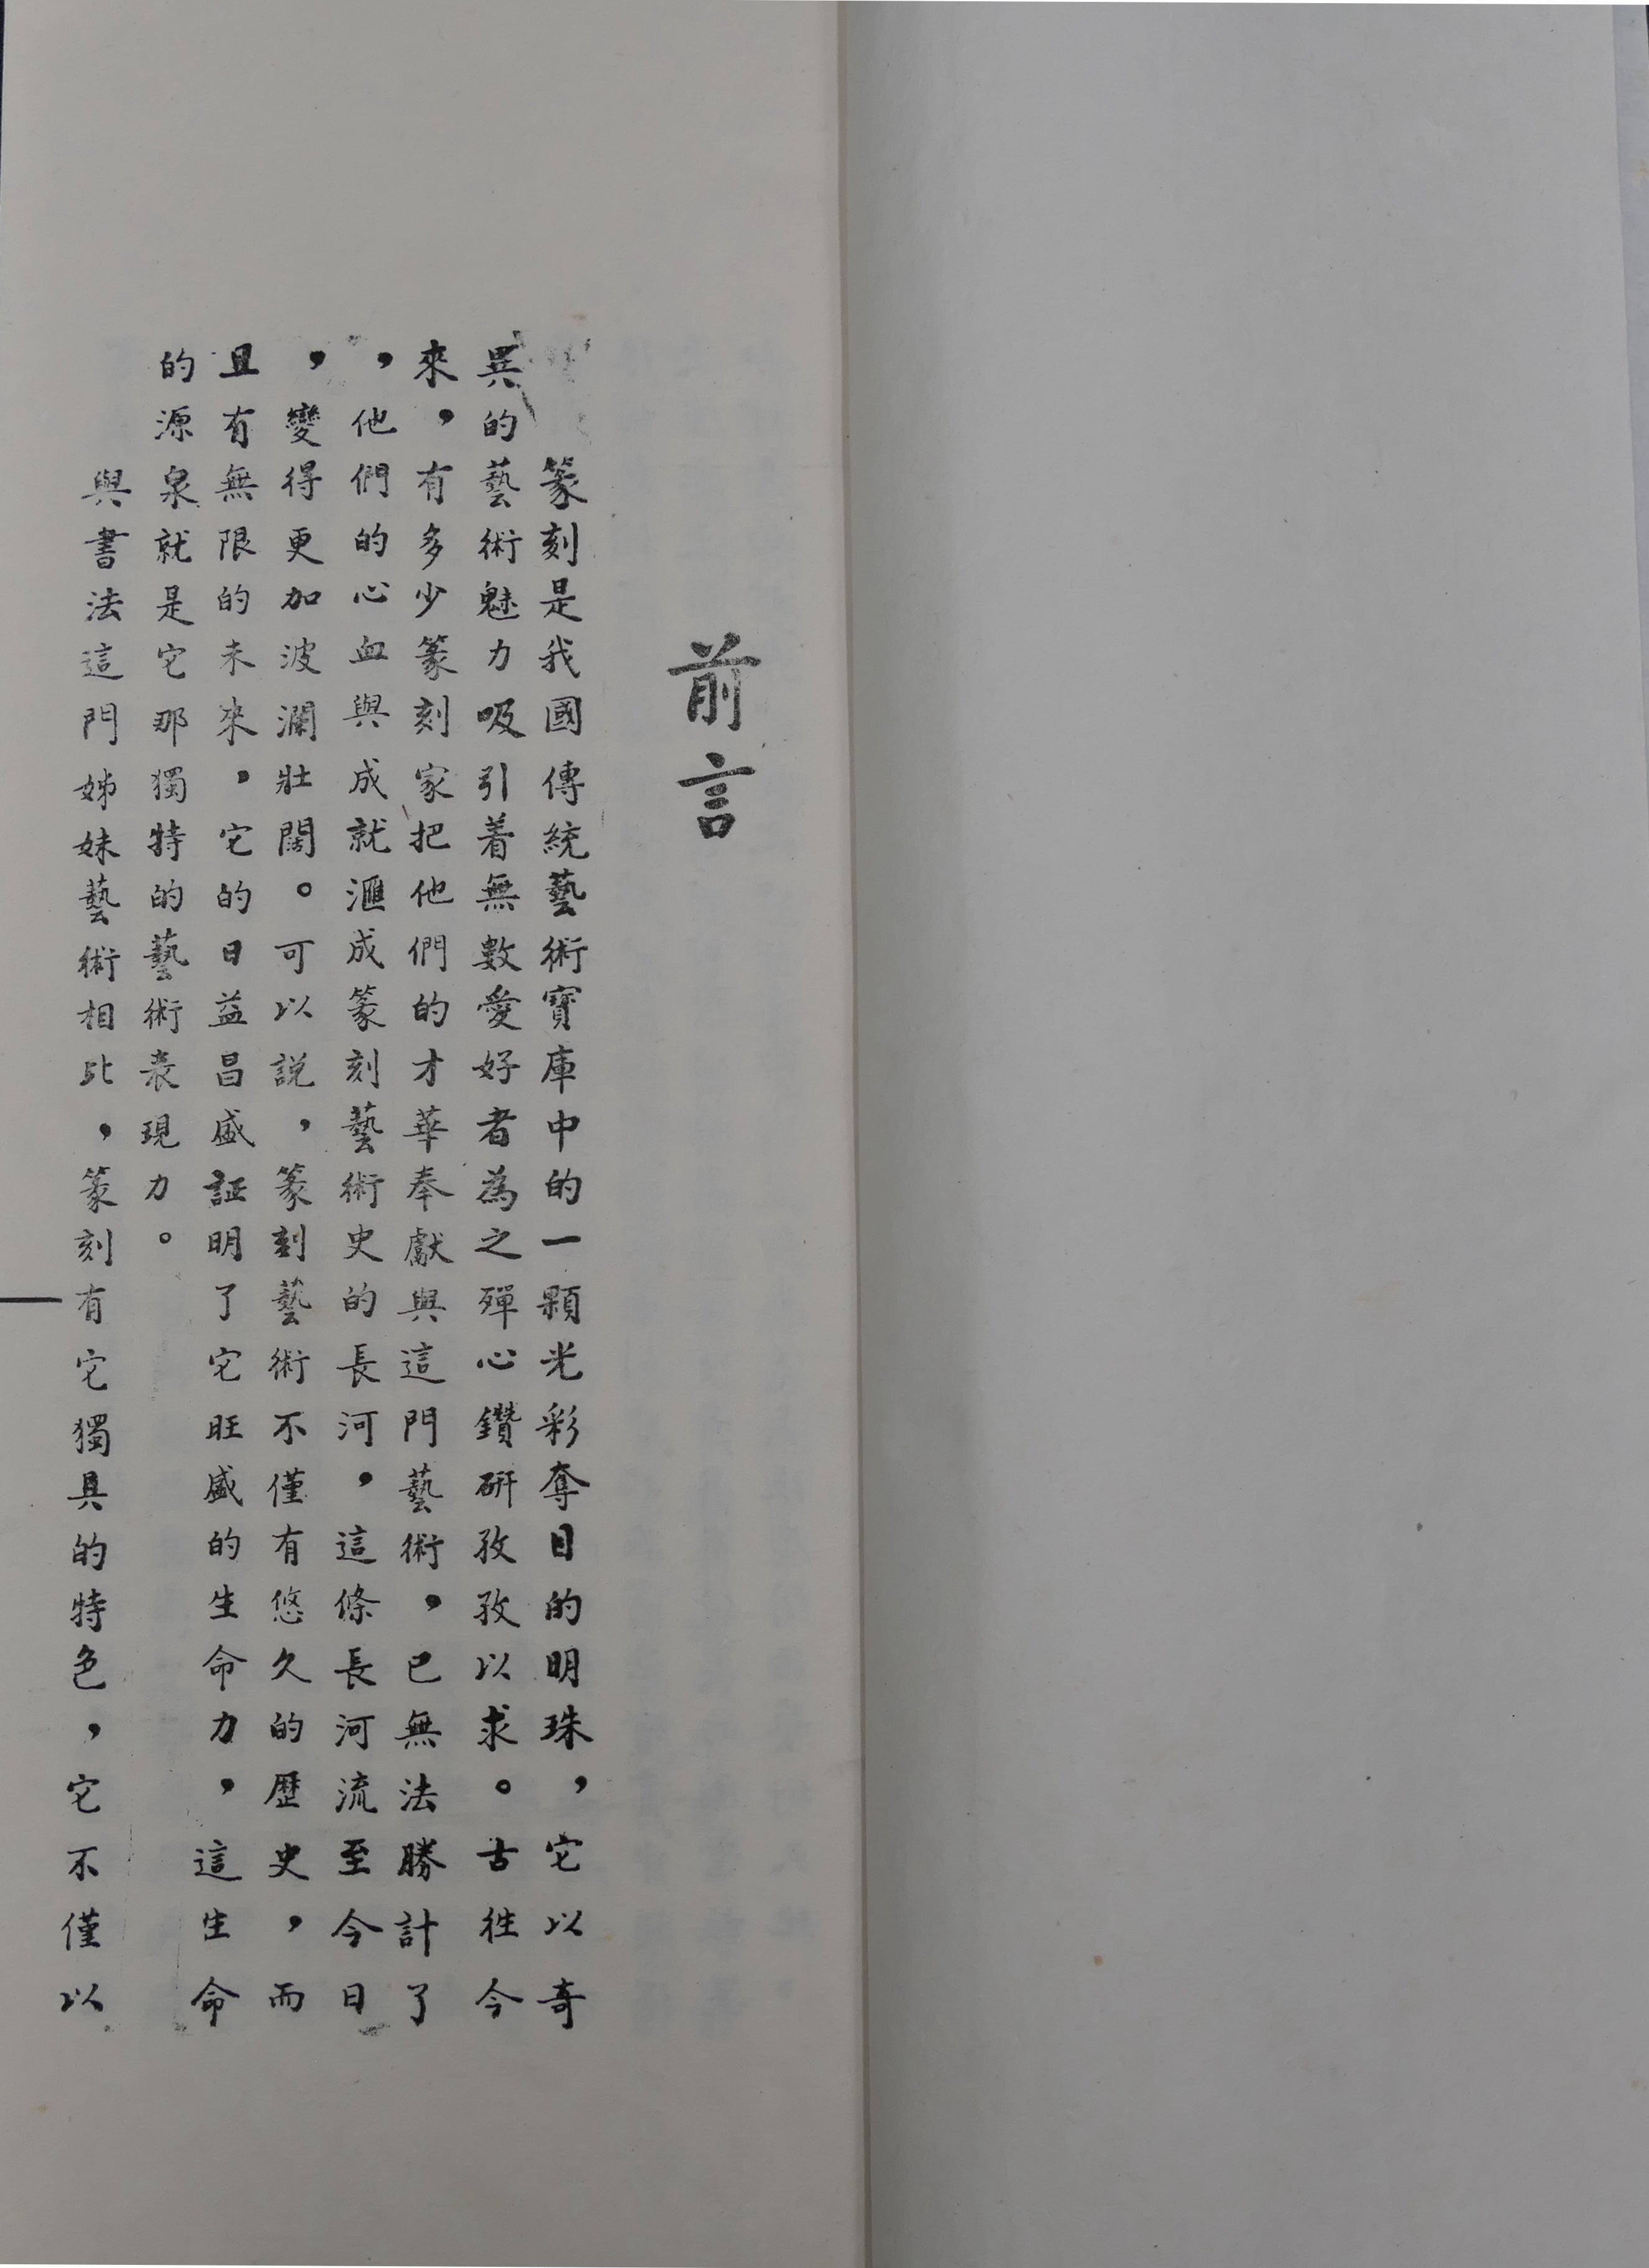 前言
篆刻是我國傳統藝術寶庫中的一顆光彩奪目的明珠，它以奇
異的藝術魅力吸引着無數愛好者為之殫心鑽研孜孜以求。古往今
來，有多少篆刻家把他們的才華奉獻與這門藝術，已無法勝計了
，他們的心血與成就滙成篆刻藝術史的長河，這條長河流至今日
，變得更加波瀾壯闊。可以説，篆刻藝術不僅有悠久的歷史，而
且有無限的未來，它的日益昌盛証明了它旺盛的生命力，這生命
的源泉就是它那獨特的藝術表現力。
與書法這門姊妹藝術相比，篆刻有它獨具的特色，它不僅以